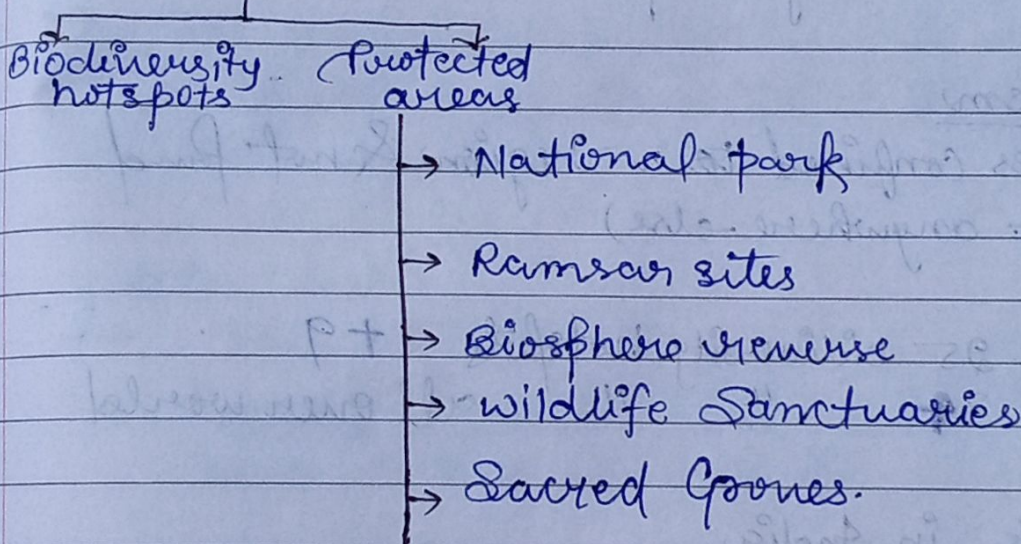 Biodiversity Protected
hotspots areas
→ National park
→ Ramsar sites
→ Biosphere reverse
→ wildlife Sanctuaries
→ Sacred Groves.